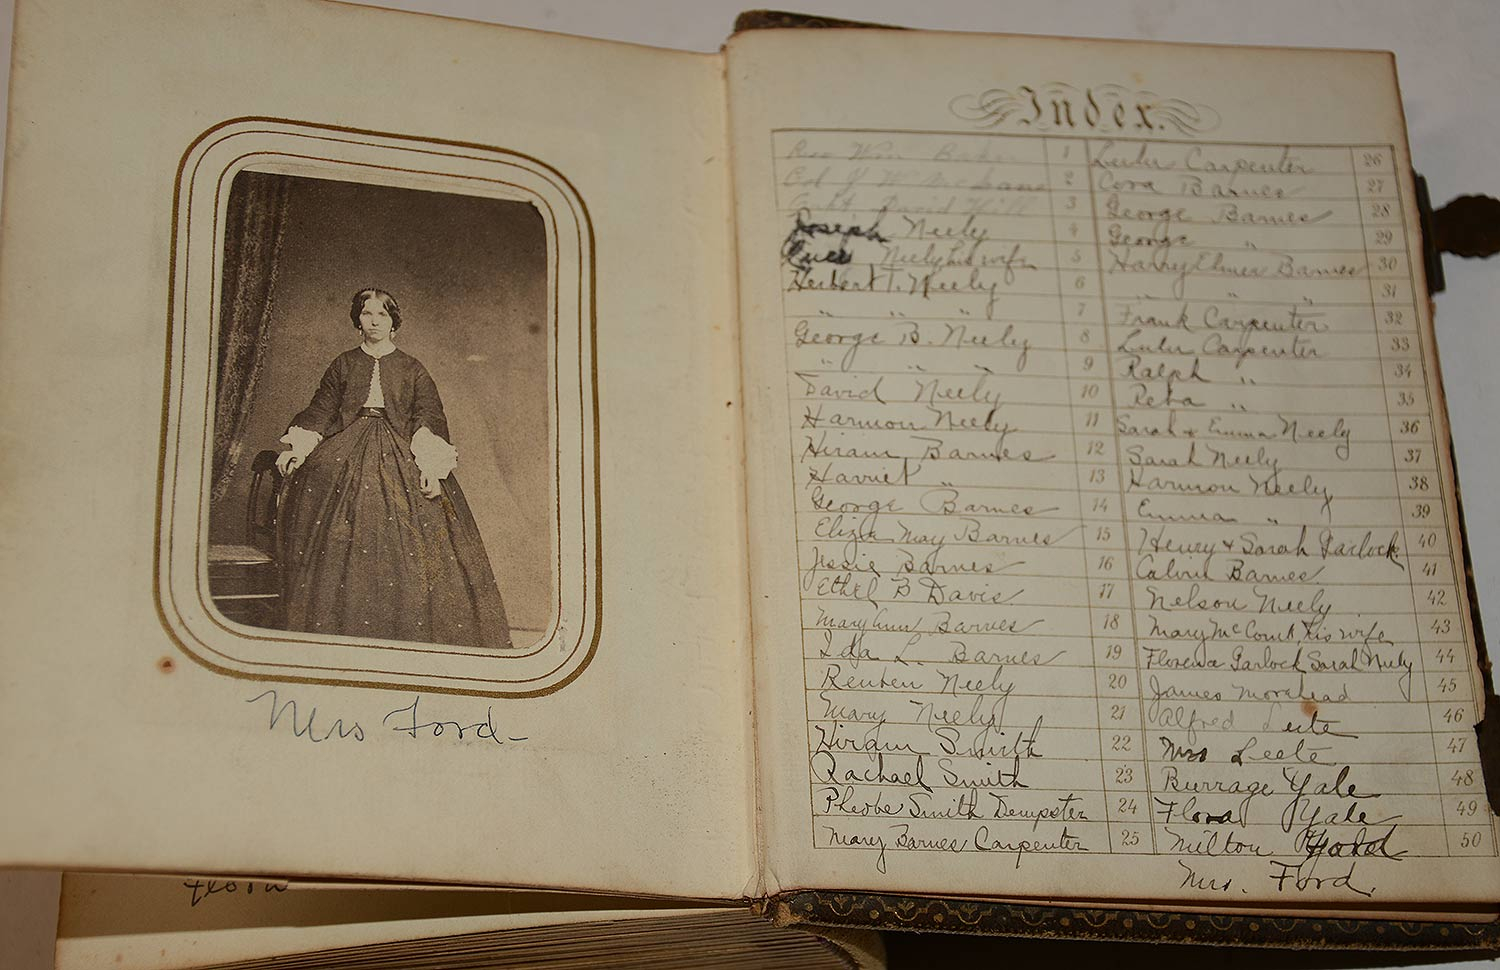 Mrs Ford
Flora
Index.
Rev Wm Baker 1
Col J W McLane 2
Capt. David Hill 3
Joseph Neely 4
Neely his wife 5
Herbert T. Neely 6
" " " 7
George B. Neely 8
" " " 9
David Neely 10
Harmon Neely 11
Hiram Barnes 12
Harriet " 13
George Barnes 14
Eliza May Barnes 15
Jessie Barnes 16
Ethel B Davis 17
Mary Ann Barnes 18
Ida L. Barnes 19
Reuben Neely 20
Mary Neely 21
Hiram Smith 22
Rachael Smith 23
Pheobe Smith Dempster 24
Mary Barnes Carpenter 25
Lulu Carpenter 26
Cora Barnes 27
George Barnes 28
George " 29
Harry Elmer Barnes 30
" " " 31
Frank Carpenter 32
Lulu Carpenter 33
Ralph " 34
Reba " 35
Sarah & Emma Neely 36
Sarah Neely 37
Harmon Neely 38
Emma " 39
Henry & Sarah Garlock 40
Calvin Barnes 41
Nelson Neely 42
Mary McCourt, his wife 43
Florena Garlock Sarah Neely 44
James Morehead 45
Alfred Leete 46
Mrs Leete 47
Burrage Yale 48
Flora Yale 49
Milton 50
Mrs. Ford.